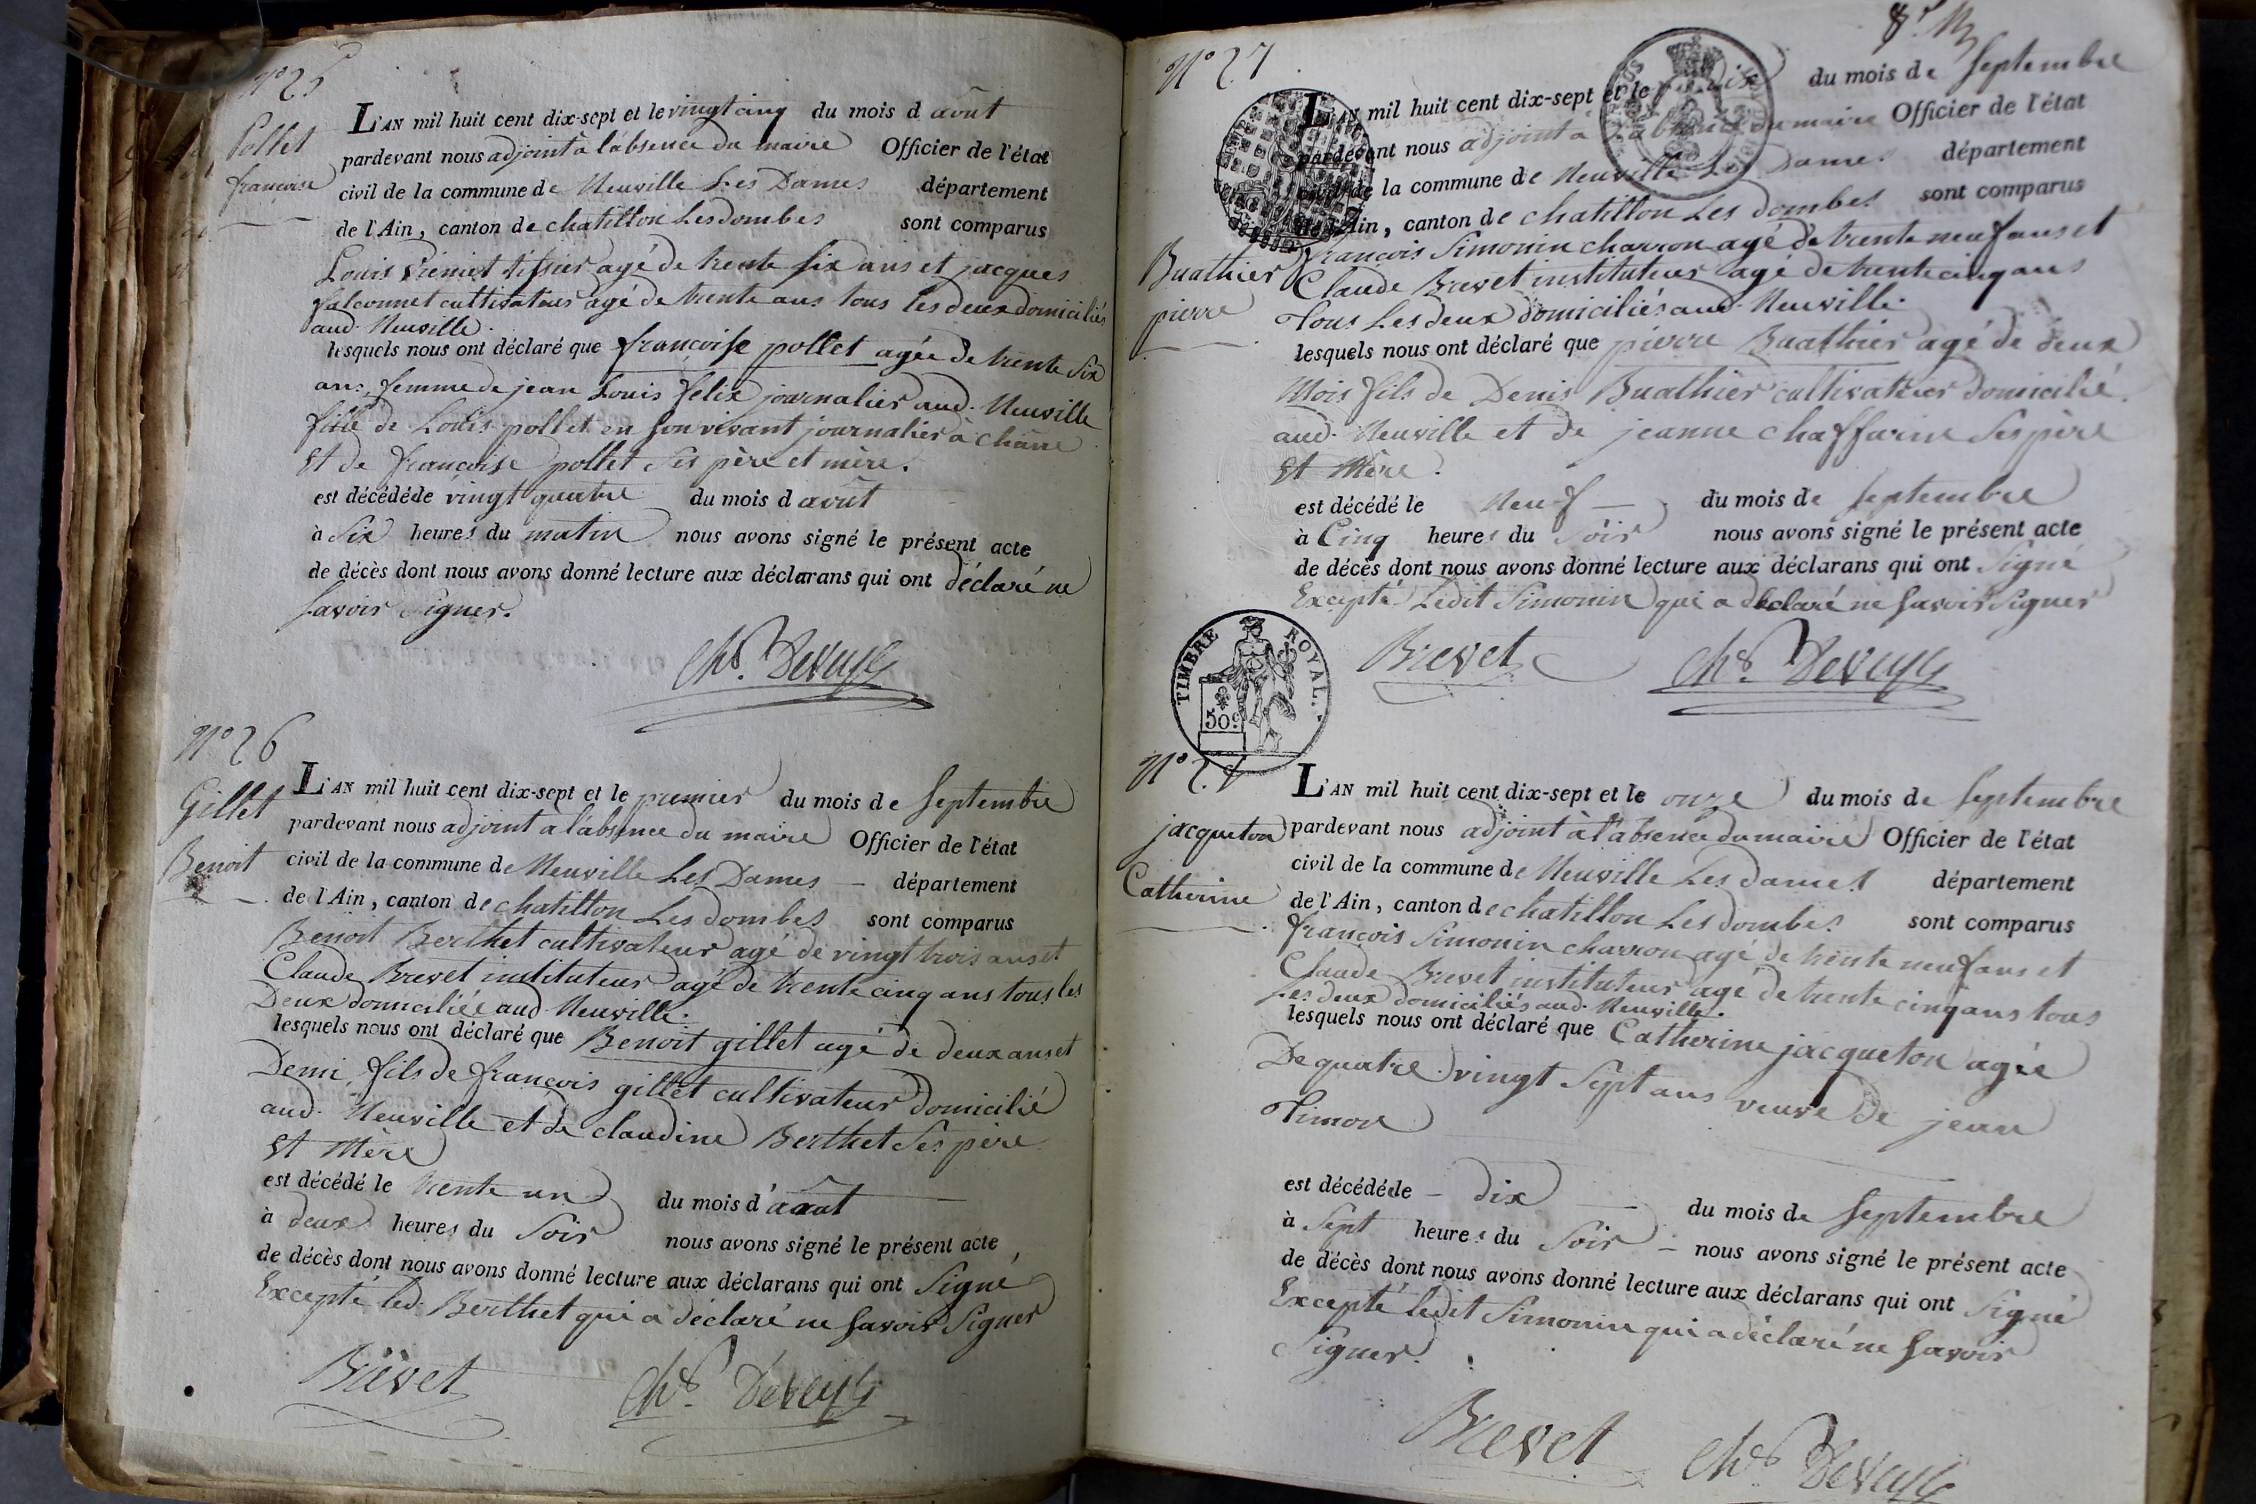 N° 25
Pollet
françoise
L'AN mil huit cent dix-sept et le vingt cinq du mois d août
pardevant nous adjoint à l'absence du maire Officier de l'état
civil de la commune de Neuville Les Dames département
de l'Ain, canton de chatillon Les dombes sont comparus
Louis tissier agé de trente six ans et jacques
falconnet cultivateur agé de trente ans tous les deux domiciliés
aud. Neuville.
lesquels nous ont déclaré que françoise pollet agée de trente six
ans, femme de jean Louis felix journalier aud. Neuville
fille de Louis pollet en son vivant journalier à
et de françoise pollet ses père et mère.
est décédé de vingt quatre du mois d août
à six heures du matin nous avons signé le présent acte
de décès dont nous avons donné lecture aux déclarans qui ont déclaré ne
savoir signer.
N° 26
Gillet
Benoit
L'AN mil huit cent dix-sept et le premier du mois de Septembre
pardevant nous adjoint à l'absence du maire Officier de l'état
civil de la commune de Neuville Les Dames département
de l'Ain, canton de chatillon Les dombes sont comparus
Benoit Berthet cultivateur agé de vingt trois ans et
Claude Brevet instituteur agé de trente cinq ans tous les
Deux domiciliée aud Neuville.
lesquels nous ont déclaré que Benoit gillet agé de deux ans et
Demi, fils de françois gillet cultivateur domicilié
aud. Neuville et de claudine Berthet Ses père
et Mère
est décédé le trente un du mois d'août
à deux heures du Soir nous avons signé le présent acte
de décès dont nous avons donné lecture aux déclarans qui ont Signé
Excepté led. Berthet qui a déclaré ne savoir Signer
Brevet
N° 27
Buathier
pierre
L'AN mil huit cent dix-sept et le dix du mois de Septembre
pardevant nous adjoint à l'absence du maire Officier de l'état
civil de la commune de Neuville Les Dames département
de l'Ain, canton de chatillon Les dombes sont comparus
françois Simonin charron agé de trente neuf ans et
Claude Brevet instituteur agé de trente cinq ans
Tous Les deux domiciliés aud. Neuville.
lesquels nous ont déclaré que pierre Buathier agé de deux
Mois fils de Denis Buathier cultivateur domicilié
aud. Neuville et de jeanne chaffarin Ses père
et Mère.
est décédé le Neuf du mois de Septembre
à Cinq heures du Soir nous avons signé le présent acte
de décès dont nous avons donné lecture aux déclarans qui ont Signé
Excepté Ledit Simonin qui a déclaré ne Savoir Signer
Brevet
TIMBRE ROYAL.
50c
jacqueton
Catherine
L'AN mil huit cent dix-sept et le onze du mois de Septembre
pardevant nous adjoint à l'absence du maire Officier de l'état
civil de la commune de Neuville Les dames département
de l'Ain, canton de chatillon Les dombes sont comparus
françois Simonin charron agé de trente neuf ans et
Claude Brevet instituteur agé de trente cinq ans tous
Les deux domiciliés aud. Neuville.
lesquels nous ont déclaré que Catherine jacqueton agée
De quatre vingt Sept ans veuve de jean
Timon
est décédé le dix du mois de Septembre
à Sept heures du Soir nous avons signé le présent acte
de décès dont nous avons donné lecture aux déclarans qui ont Signé
Excepté ledit Simonin qui a déclaré ne Savoir
Signer.
Brevet